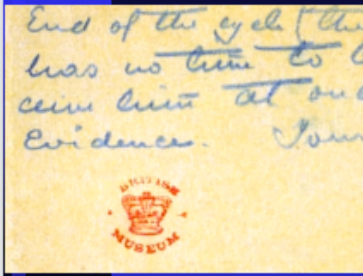 End of the cycle (the
has no time to
him at
Evidence. Your
BRITISH
MUSEUM